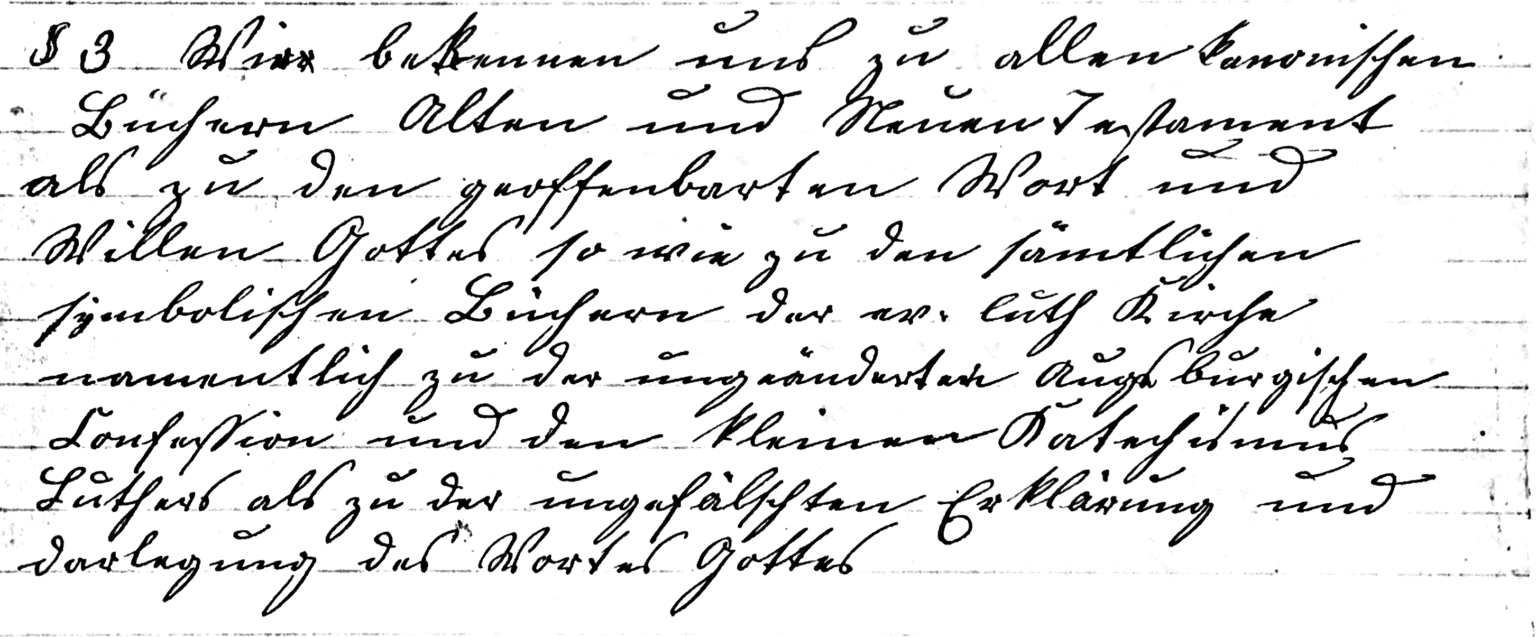 § 3 Wir bekennen uns zu allen kanonischen
Büchern Alten und Neuen Testament
als zu den geoffenbarten Wort und
Willen Gottes so wie zu den sämtlichen
symbolischen Büchern der ev. luth Kirche
namentlich zu der ungeänderten Augsburgischen
Confession und den kleinen Katechismus
Luthers als zu der ungefälschten Erklärung und
darlegung des Wortes Gottes